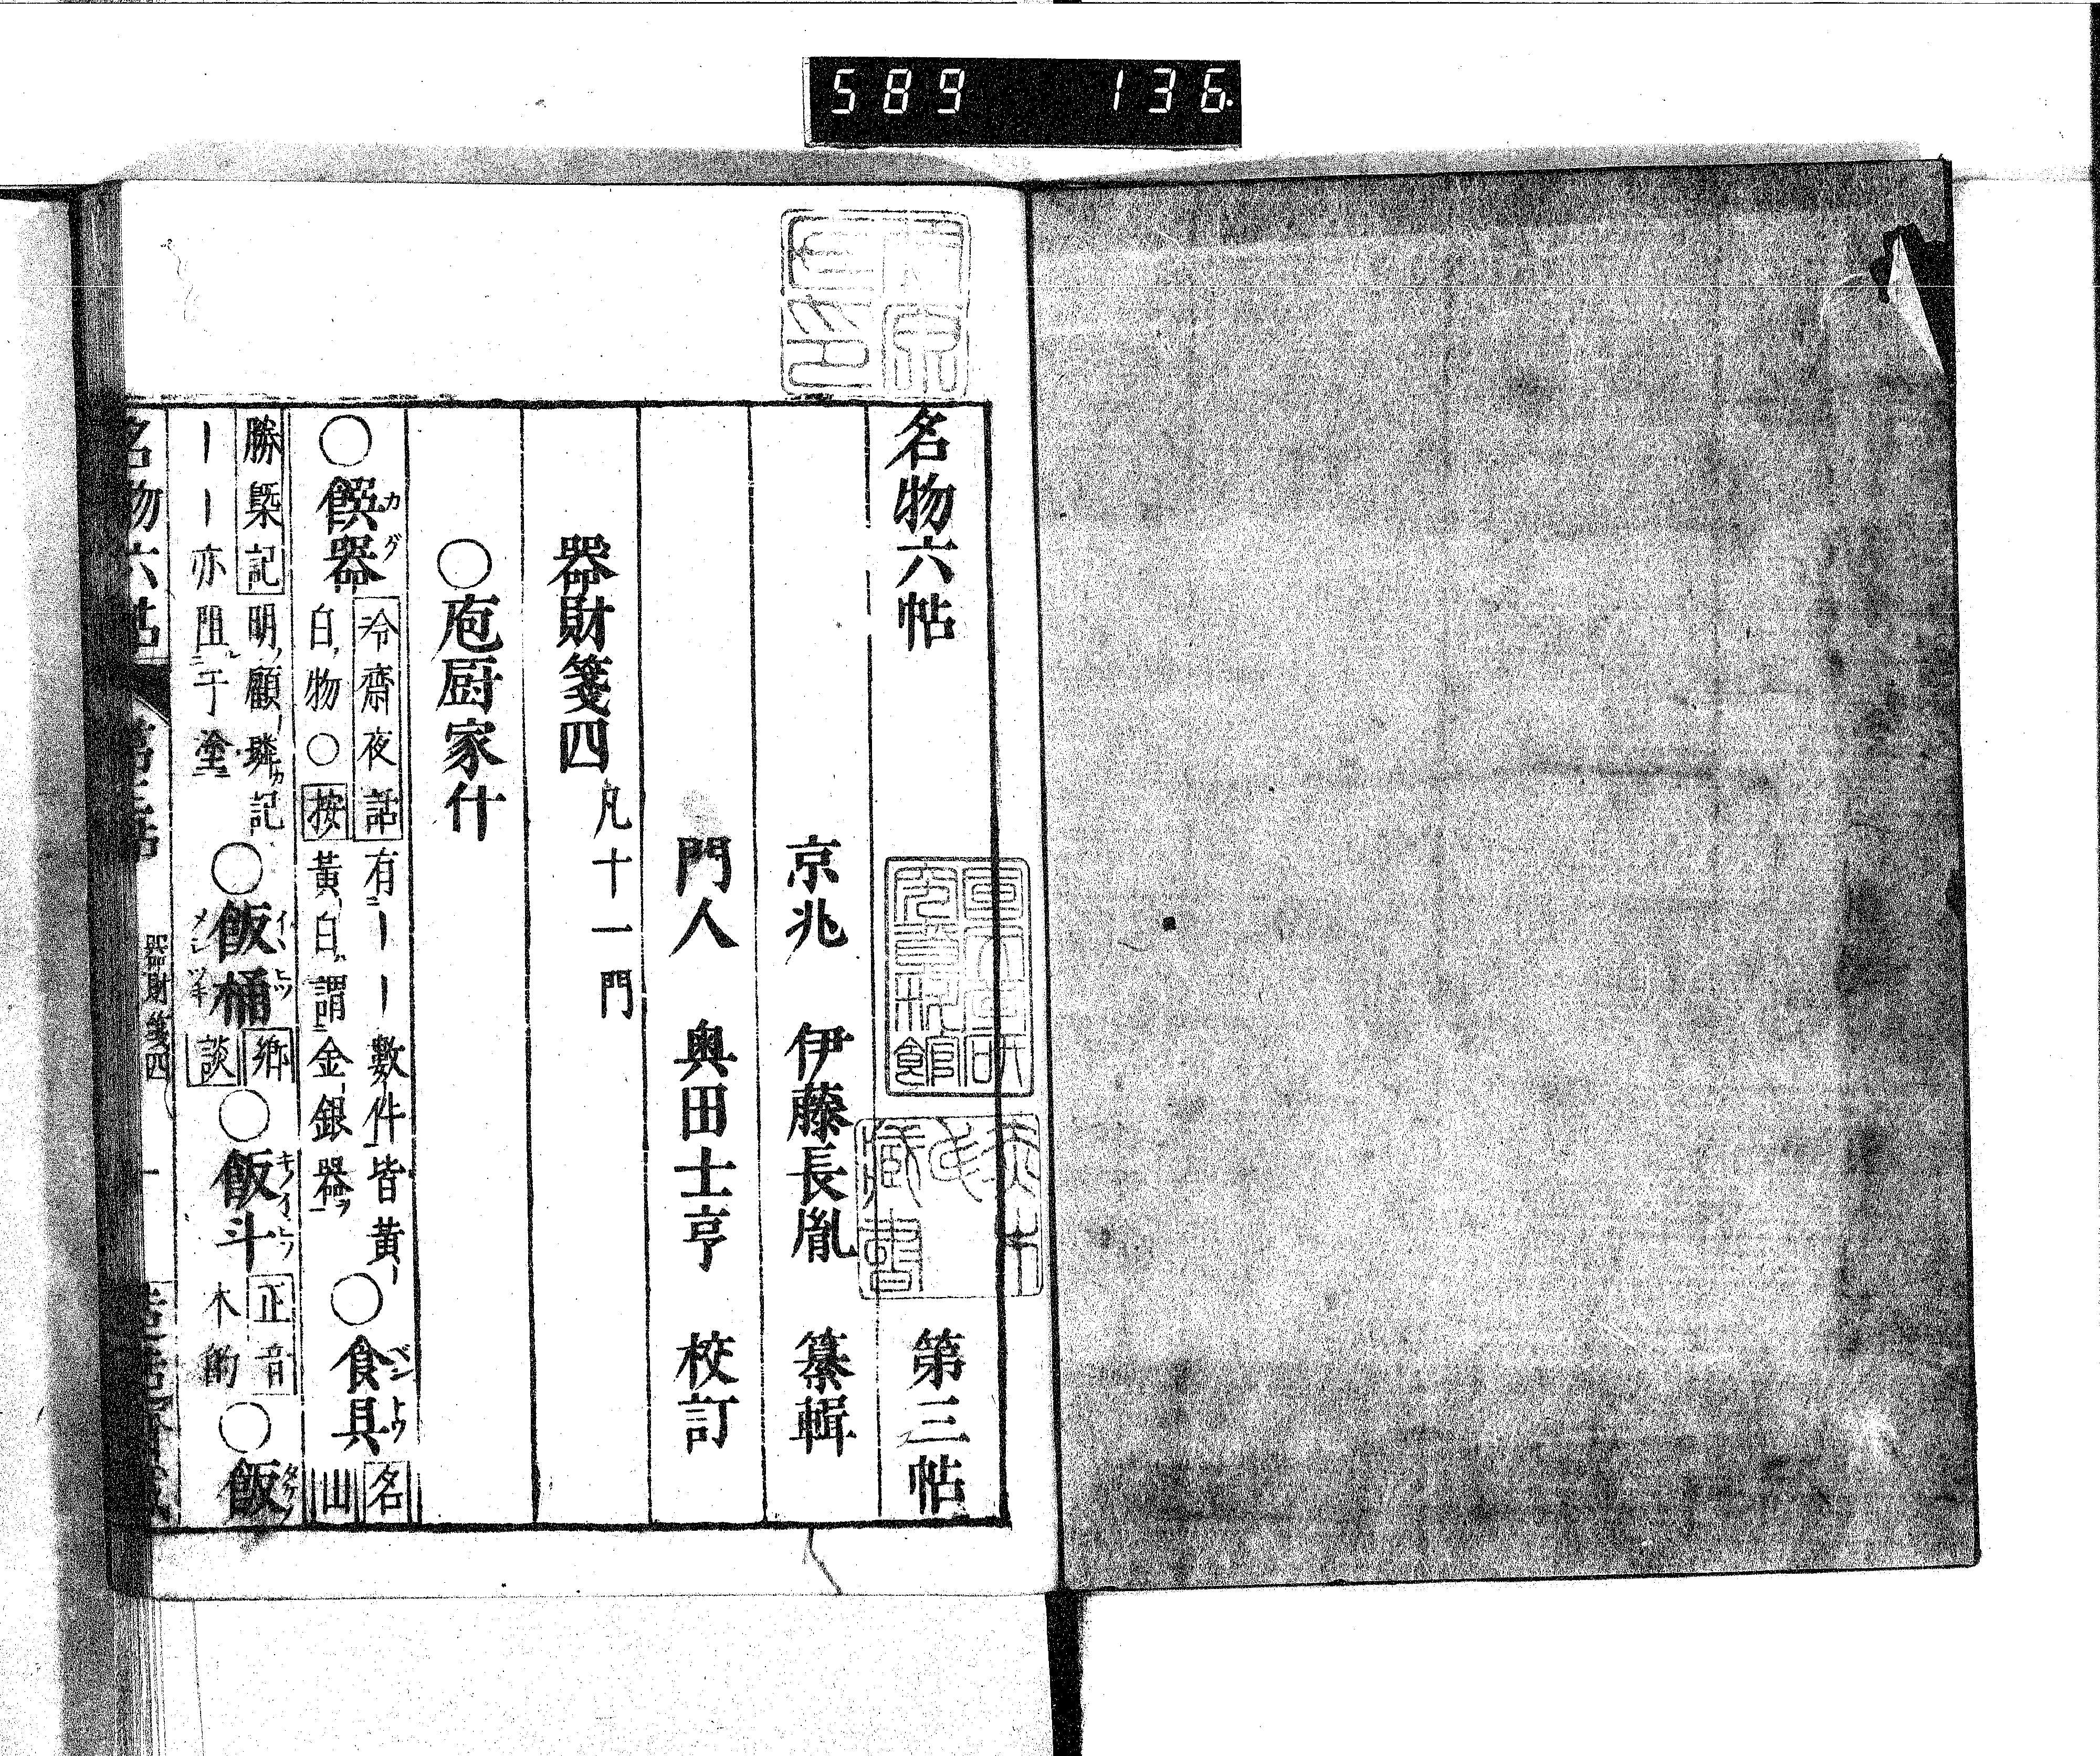 589 136
名物六帖 第三帖
京兆 伊藤長胤 纂輯
門人 奥田士亨 校訂
器財箋四 凡十一門
○庖厨家什
○饌器 カグ 冷齋夜話 有――數件皆黃
白物○按黃白謂金銀器 ○食具 ベントウ 名山
勝槩記 明顧璘記
――亦阻于塗 ○飯桶 郷談 ○飯斗 正音 木的 ○飯
名物六帖
器財箋四
一